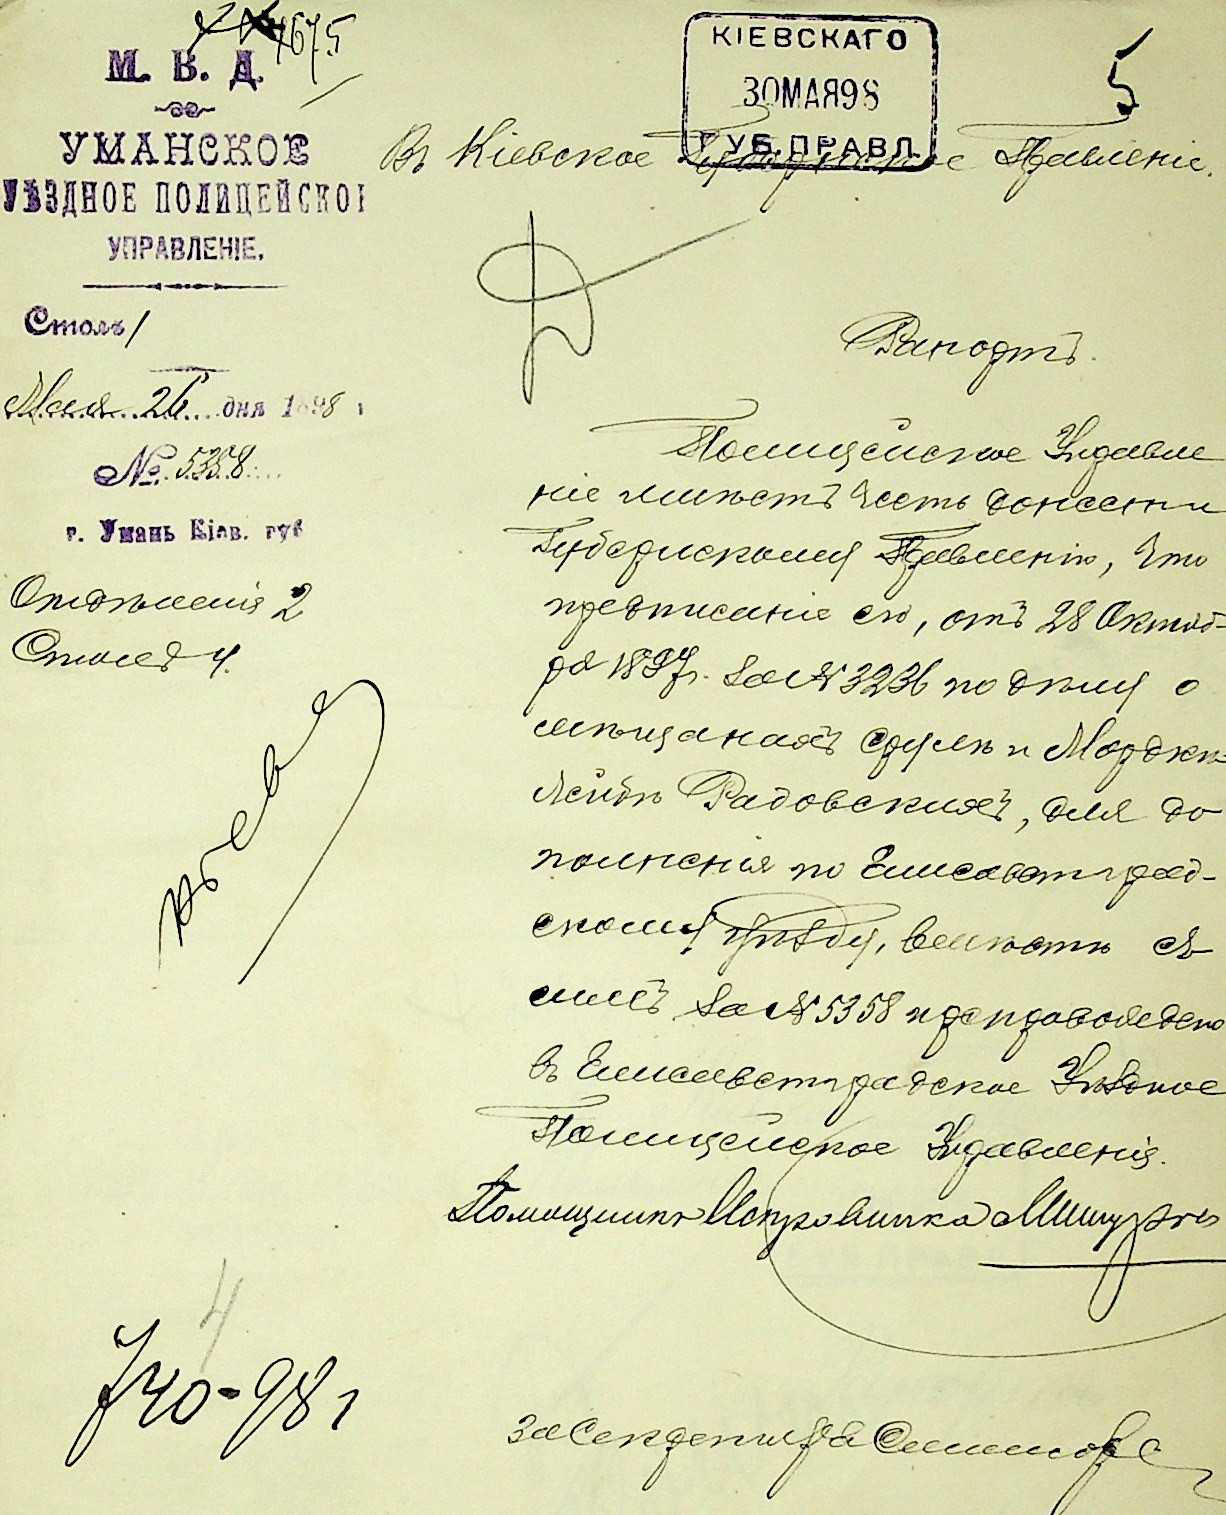 4675
М. В. Д.
УМАНСКОЕ
УѢЗДНОЕ ПОЛИЦЕЙСКОЕ
УПРАВЛЕНІЕ.
Столъ 1
Мая 26 дня 1898 г
№ 5358
г. Умань Кіев. губ
Отдѣленія 2
Столъ 4.
КІЕВСКАГО
30 МАЯ 98
ГУБ. ПРАВЛ.
5
Въ Кіевское Губернское Правленіе.
Рапортъ.
Полицейское Управле
ніе имѣетъ честь донести
Губернскому Правленію, что
предписаніе его, отъ 28 Октяб-
ря 1897 г. за № 3236 по дѣлу о
мѣщанахъ Срулѣ и Мордкѣ-
Лейбѣ Радовскихъ, для до
полненія по Елисаветград-
скому уѣзду, вмѣстѣ съ
симъ за № 5358 препровождено
въ Елисаветградское Уѣздное
Полицейское Управленія.
Помощникъ Исправника
за Секретаря
4
740-98 г